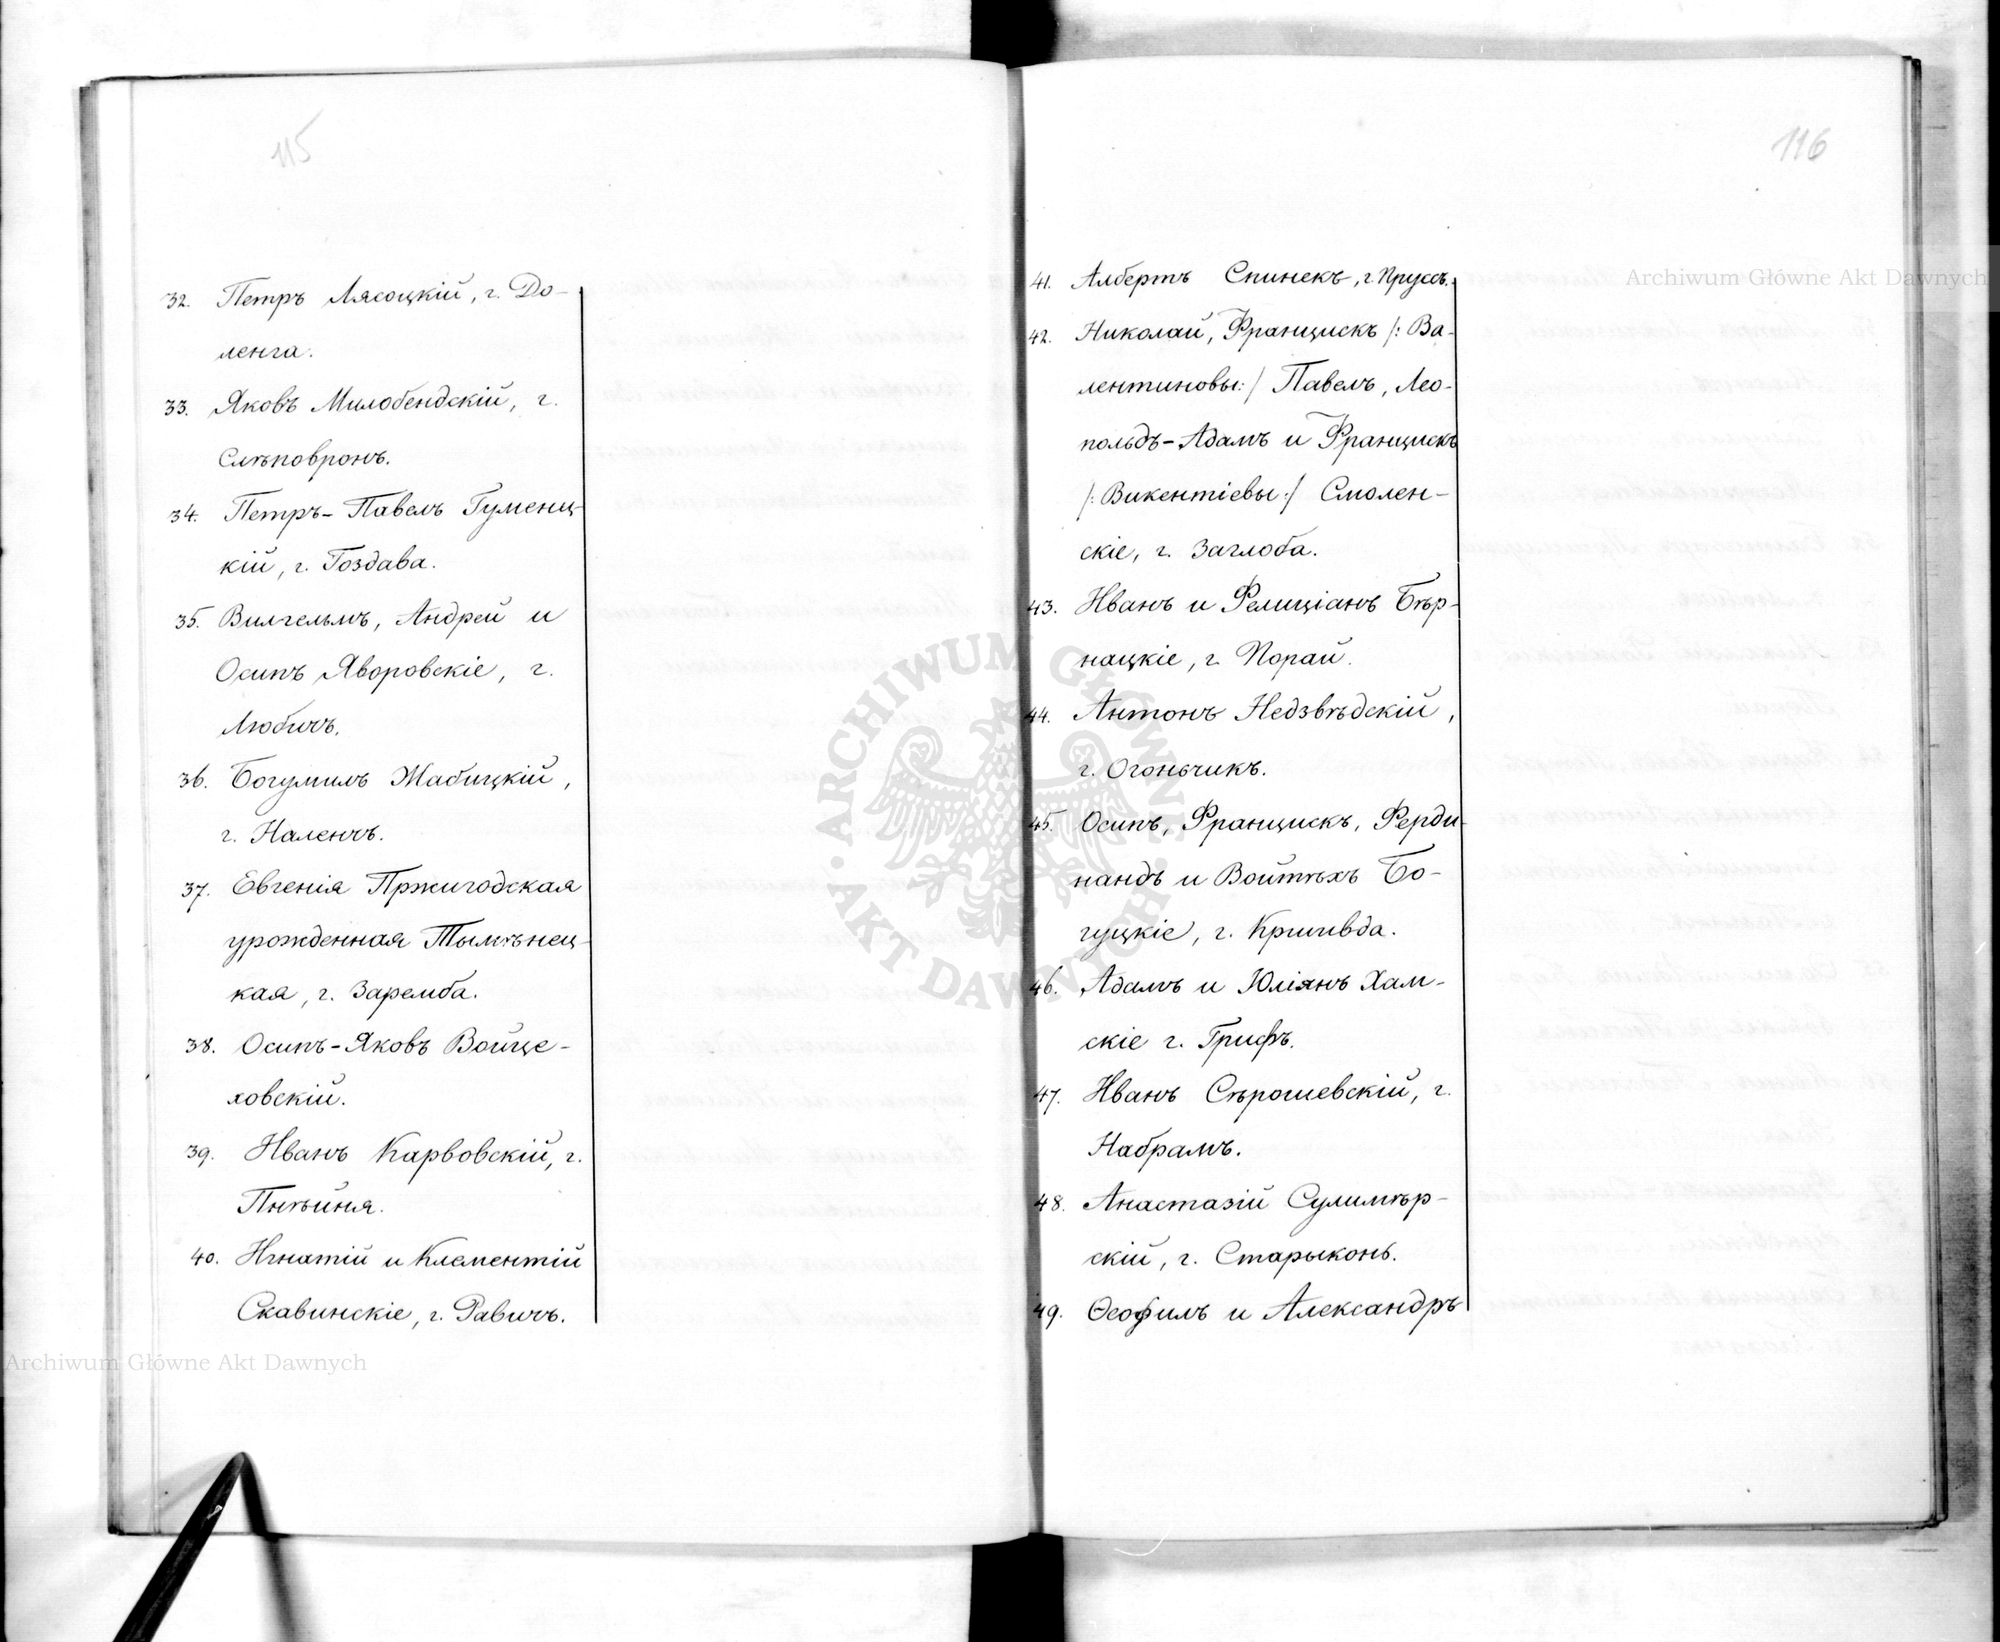 115
32. Петръ Лясоцкій, г. До-
ленга.
33. Яковъ Милобендскій, г.
Слѣповронъ.
34. Петръ-Павелъ Гуменец-
кій, г. Гоздава.
35. Вилгельмъ, Андрей и
Осипъ Яворовскіе, г.
Любичъ.
36. Богумилъ Жабицкій,
г. Наленчъ.
37. Евгенія Пржигодская
урожденная Тымѣнец-
кая, г. Заремба.
38. Осипъ-Яковъ Войце-
ховскій.
39. Иванъ Карвовскій, г.
Пнѣйня.
40. Игнатій и Клементій
Скавинскіе, г. Равичъ.
116
41. Албертъ Спинекъ, г. Пруссъ.
42. Николай, Францискъ /: Ва-
лентиновы:/ Павелъ, Лео-
польдъ-Адамъ и Францискъ
/: Викентіевы:/ Смолен-
скіе, г. Заглоба.
43. Иванъ и Фелиціанъ Бѣр-
нацкіе, г. Порай.
44. Антонъ Недзвѣдскій,
г. Огончикъ.
45. Осипъ, Францискъ, Ферди-
нандъ и Войтѣхъ Бо-
гуцкіе, г. Кршивда.
46. Адамъ и Юліянъ Хам-
скіе г. Грифъ.
47. Иванъ Сѣрошевскій, г.
Набрамъ.
48. Анастазій Сулимѣр-
скій, г. Старыконь.
49. Ѳеофилъ и Александръ
Archiwum Główne Akt Dawnych
ARCHIWUM GŁÓWNE · AKT DAWNYCH ·
Archiwum Główne Akt Dawnych